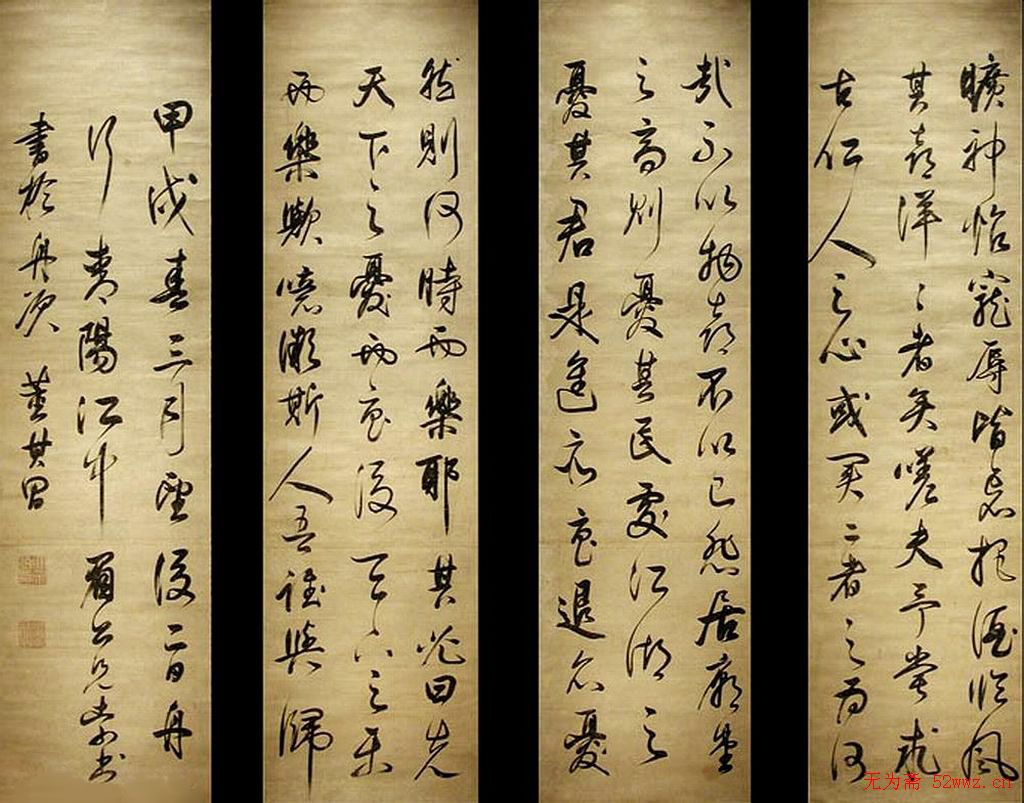 曠神怡寵辱皆忘把酒臨風
其喜洋〻者矣嗟夫予嘗求
古仁人之心或異二者之為何
哉不以物喜不以己悲居廟堂
之高則憂其民處江湖之
憂其君是進亦憂退亦憂
然則何時而樂耶其必曰先
天下之憂而憂後天下之樂
而樂歟噫微斯人吾誰與歸
甲戌春三月望後二日舟
行陽江中眉公兄索書
書於舟次 董其昌
无为斋 52wwz.cn